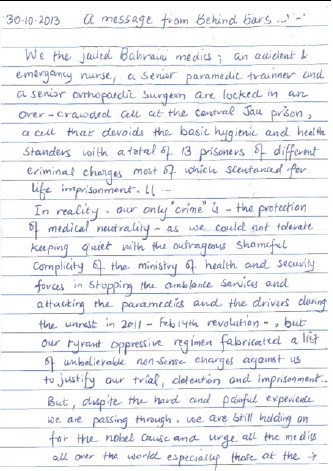 30-10-2013 A message from Behind bars...!
We the jailed Bahraini medics; an accident &
emergency nurse, a senior paramedic trainner and
a senior orthopaedic surgeon are locked in an
over-crawded cell at the central Jau prison,
a cell that devoids the basic hygienic and health
standers with a total of 13 prisoners of different
criminal charges most of which scentanced for
life imprisonment. !! --
In reality, our only "crime" is - the protection
of medical neutrality - as we could not tolerate
keeping quiet with the outrageous shamiful
complicity of the ministry of health and security
forces in stopping the ambulance services and
attacking the paramedics and the drivers during
the unrest in 2011 - Feb 14th revolution -, but
our tyrant oppressive regimen fabricated a list
of unbelievable non-sense charges against us
to justify our trial, detention and imprisonment..
But, despite the hard and painful experience
we are passing through. we are still holding on
for the nobel cause and urge all the medics
all over the world especially those at the →